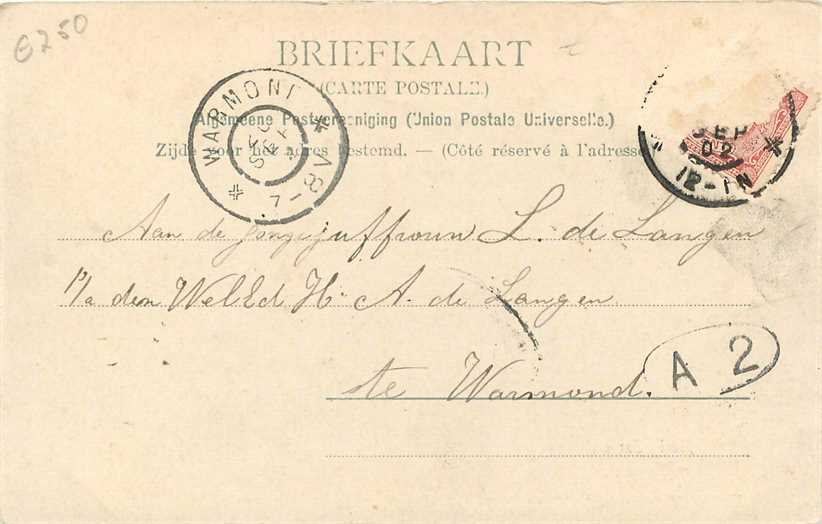 250
BRIEFKAART
(CARTE POSTALE.)
Algemeene Postvereeniging (Union Postale Universelle.)
Zijde voor het adres bestemd. — (Côté réservé à l'adresse
WARMOND
7-8V
SEP
02
12-1N
Aan de Jongejuffrouw L. de Langen
p/a den WelEd H. A. de Langen
te Warmond.
A 2